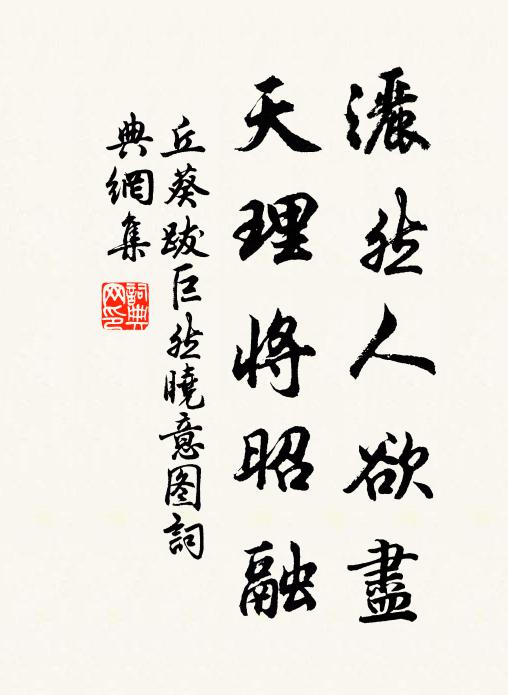 灑然人欲盡
天理將昭融
丘葵跋巨然曉意图詞
典網集
詞典网印